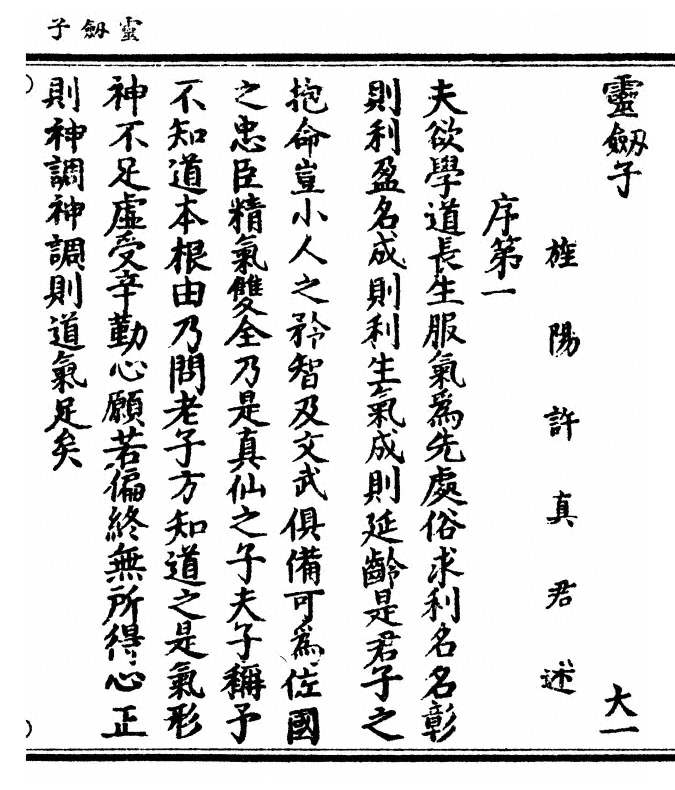 靈劔子
靈劔子　大一
旌陽許真君述
序第一
夫欲學道長生服氣爲先處俗求利名名彰
則利盈名成則利生氣成則延齡是君子之
抱命豈小人之矜智及文武俱備可爲佐國
之忠臣精氣雙全乃是真仙之子夫子稱予
不知道本根由乃問老子方知道之是氣形
神不足虛受辛勤心願若偏終無所得心正
則神調神調則道氣足矣